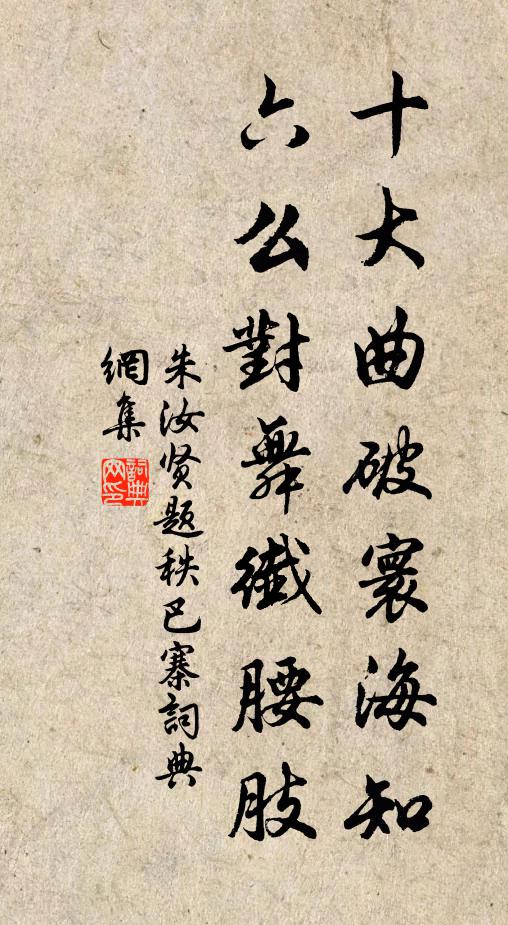 十大曲破寰海知
六么對舞纖腰肢
朱汝贤题秩巴寨詞典
網集
詞典
网印